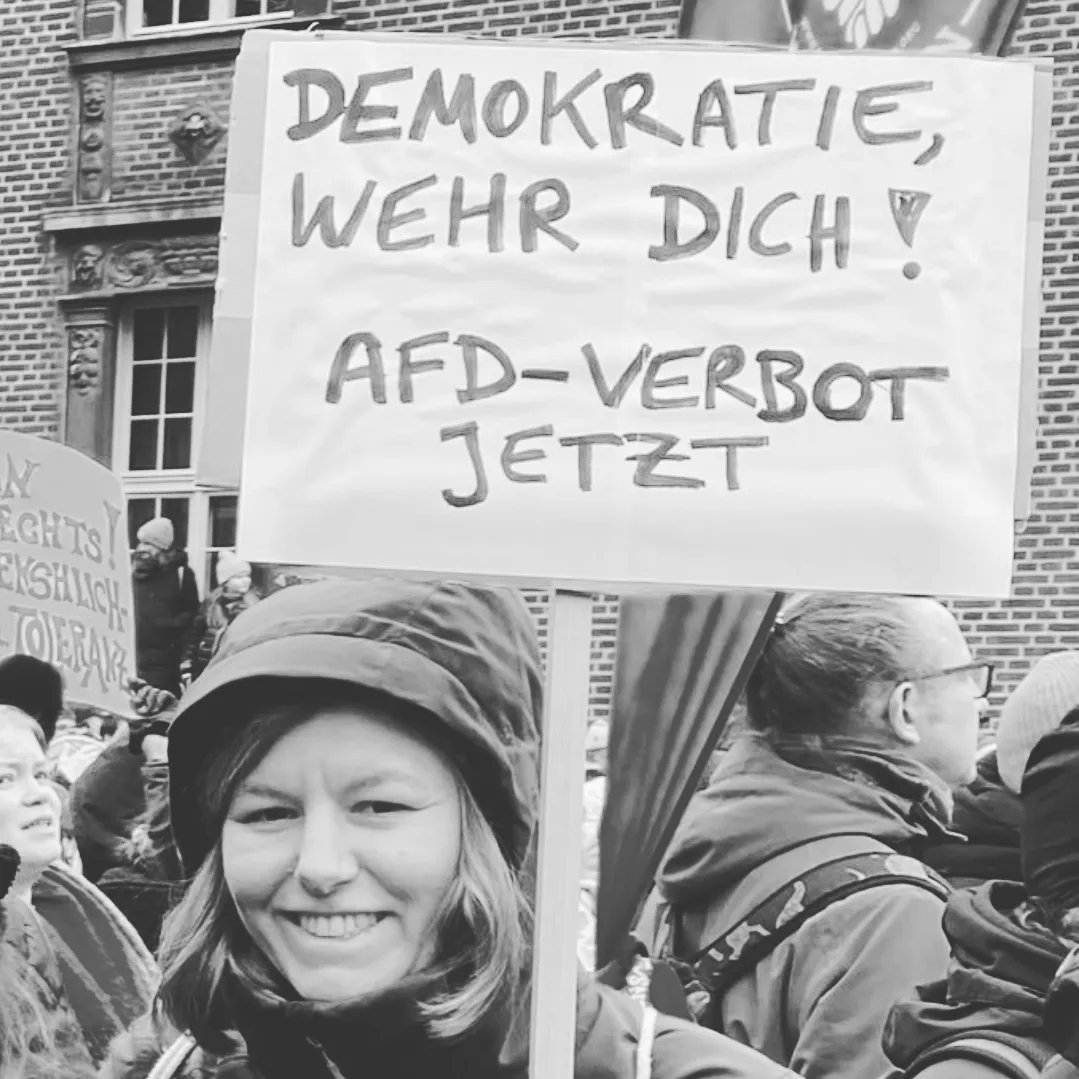 DEMOKRATIE,
WEHR DICH!
AFD-VERBOT
JETZT
ECHTS!
ENSHLICH-
TOLERANZ